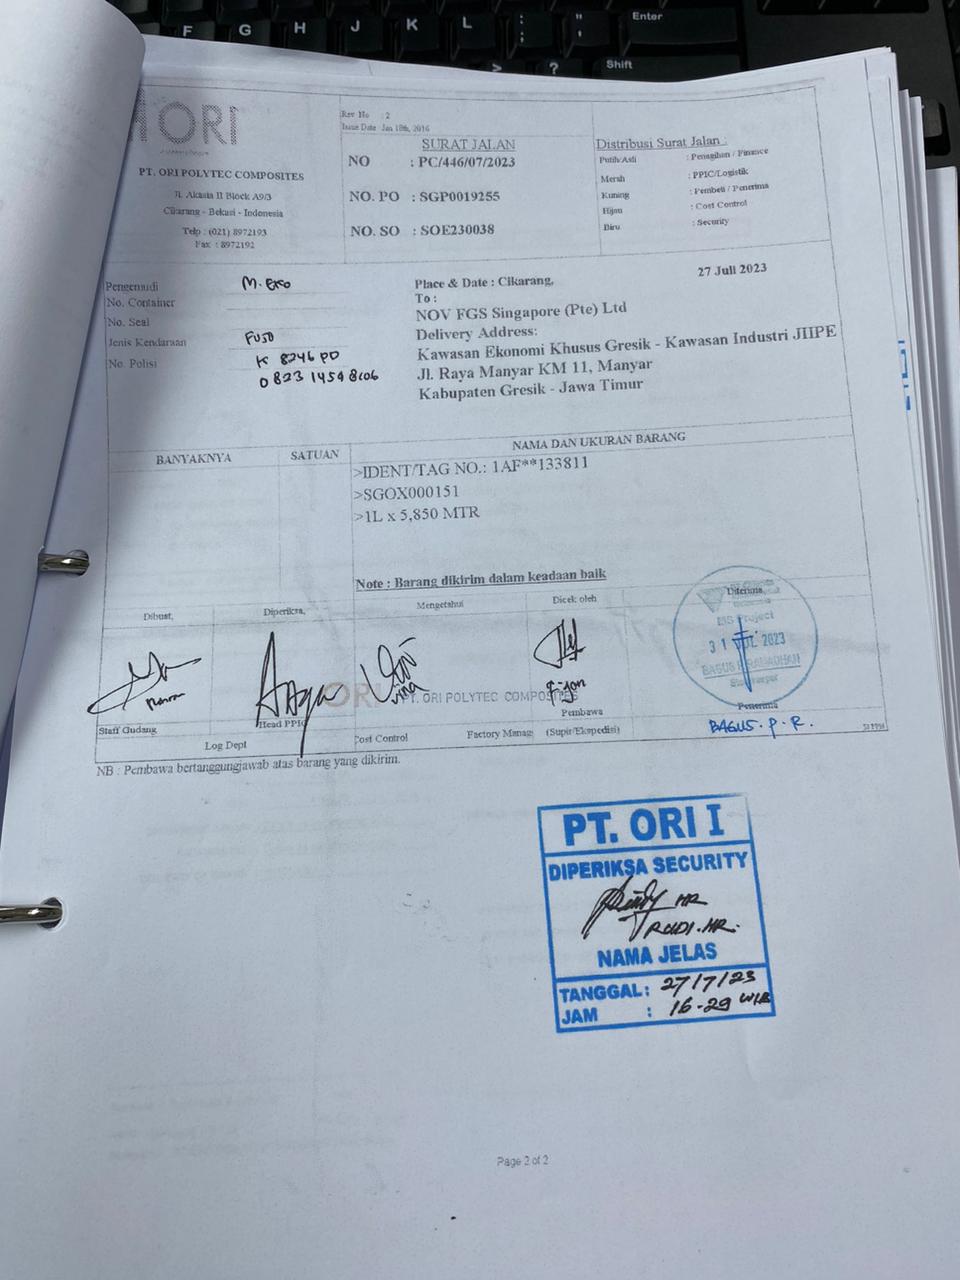 F G H J K L : ; " ' Enter
> ? Shift
ORI
PT. ORI POLYTEC COMPOSITES
Jl. Akasia II Block A9/3
Cikarang - Bekasi - Indonesia
Telp : (021) 8972193
Fax : 8972192
Rev No : 2
Issue Date Jan 18th, 2016
SURAT JALAN
NO : PC/446/07/2023
NO. PO : SGP0019255
NO. SO : SOE230038
Distribusi Surat Jalan :
Putih/Asli : Penagihan / Finance
Merah : PPIC/Logistik
Kuning : Pembeli / Penerima
Hijau : Cost Control
Biru : Security
Pengemudi M. Eko
No. Container
No. Seal
Jenis Kendaraan FUSO
No. Polisi K 8246 PD
0823 1454 8606
Place & Date : Cikarang, 27 Juli 2023
To :
NOV FGS Singapore (Pte) Ltd
Delivery Address:
Kawasan Ekonomi Khusus Gresik - Kawasan Industri JIIPE
Jl. Raya Manyar KM 11, Manyar
Kabupaten Gresik - Jawa Timur
BANYAKNYA SATUAN NAMA DAN UKURAN BARANG
>IDENT/TAG NO.: 1AF**133811
>SGOX000151
>1L x 5,850 MTR
Note : Barang dikirim dalam keadaan baik
Dibuat, Diperiksa, Mengetahui Dicek oleh Diterima,
Project
31 JUL 2023
ORI PT. ORI POLYTEC COMPOSITES
Staff Gudang Head PPIC Cost Control Factory Manag Pembawa (Supir/Ekspedisi) Penerima
BAGUS. P. R.
Log Dept
NB : Pembawa bertanggungjawab atas barang yang dikirim.
PT. ORI I
DIPERIKSA SECURITY
RUDI. HR.
NAMA JELAS
TANGGAL : 27/7/23
JAM : 16-29 WIB
Page 2 of 2